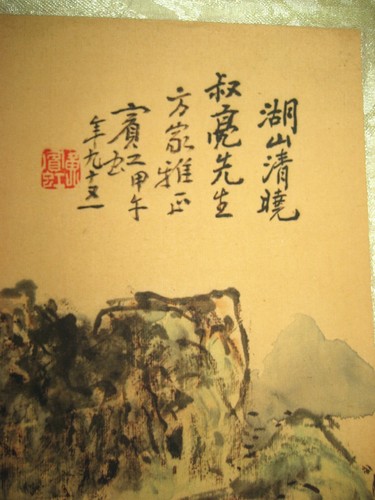 湖山清曉
叔亮先生
方家雅正
賓虹甲午
年九十又一
黃賓虹